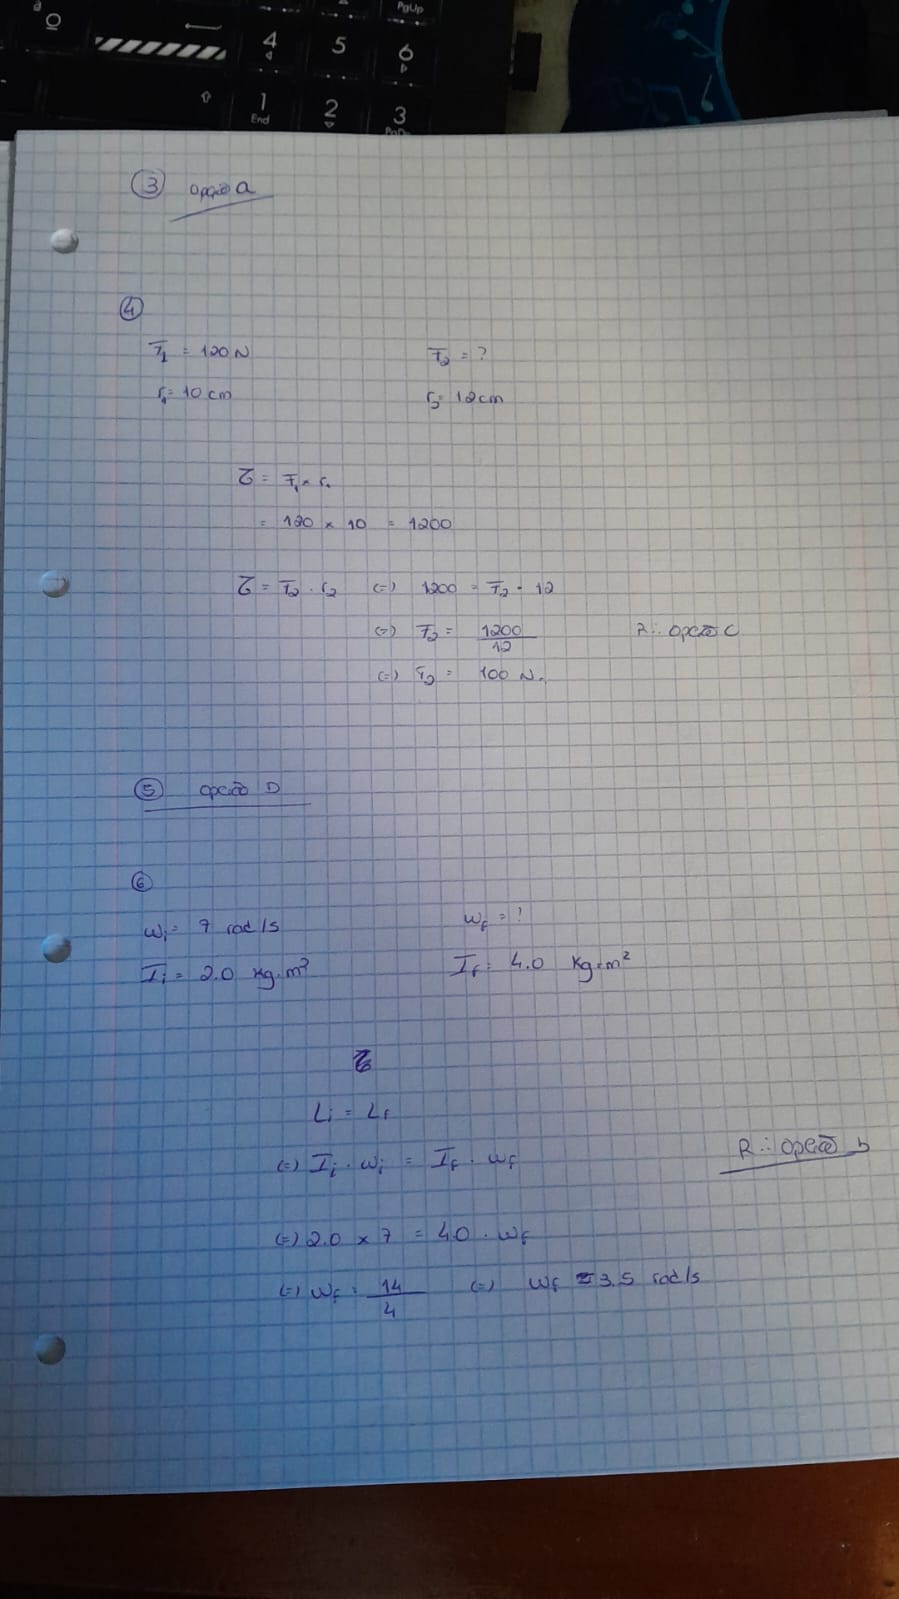 PgUp
ª
º
4
5
6
1
End
2
3
PgDn
③ opção a
④
F₁ = 120 N
F₂ = ?
r₁= 10 cm
r₂= 12cm
τ = F₁ × r₁
= 120 × 10 = 1200
τ = F₂ · r₂ (=) 1200 = F₂ · 12
(=) F₂ = 1200/12
R∴ opção C
(=) F₂ = 100 N.
⑤ opção D
⑥
ωi= 7 rad/s
ωf = ?
Ii = 2.0 kg·m²
If = 4.0 kg·m²
Li = Lf
(=) Ii · ωi = If · ωf
R∴ opção b
(=) 2.0 × 7 = 4.0 · ωf
(=) ωf = 14/4 (=) ωf = 3.5 rad/s